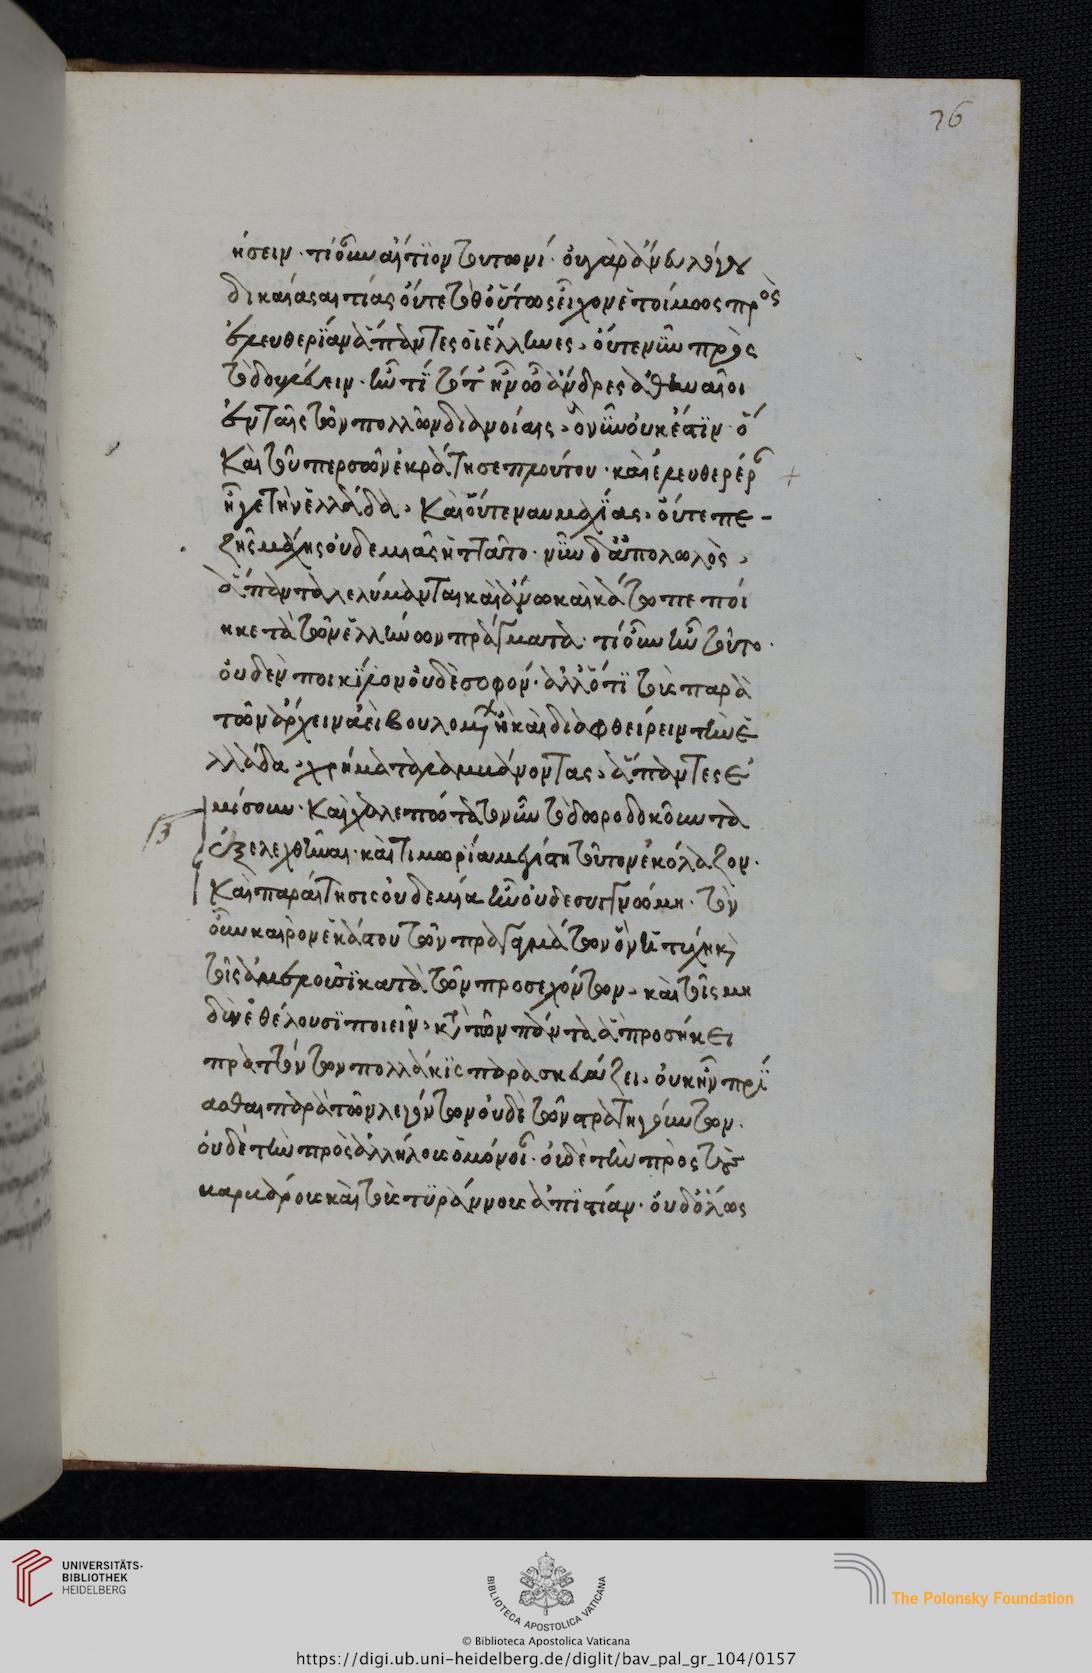 76
ήσειν· τί οὖν αἴτιον τουτωνί· οὐ γὰρ ἄνευ λόγου
δικαίας αἰτίας οὔτε τόθ' οὕτως εἶχον ἑτοίμως πρὸς
ἐλευθερίαν ἅπαντες οἱ ἕλληνες, οὔτε νῦν πρὸς
τὸ δουλεύειν· ἦν τί τότ' ἦν ὦ ἄνδρες ἀθηναῖοι
ἐν ταῖς τῶν πολλῶν διανοίαις, ὃ νῦν οὐκ ἔστιν· ὃ
καὶ τοῦ περσῶν ἐκράτησε πλούτου· καὶ ἐλευθέραν
ἦγε τὴν ἑλλάδα, καὶ οὔτε ναυμαχίας, οὔτε πε-
ζῆς μάχης οὐδεμιᾶς ἡττᾶτο· νῦν δ' ἀπολωλὸς,
ἅπαντα λελύμανται καὶ ἄνω καὶ κάτω πεποί
ηκε τὰ τῶν ἑλλήνων πράγματα· τί οὖν ἦν τοῦτο·
οὐδὲν ποικίλον οὐδὲ σοφόν· ἀλλ' ὅτι τοὺς παρὰ
τῶν ἄρχειν ἀεὶ βουλομένων ἢ καὶ διαφθείρειν τὴν ἑ
λλάδα, χρήματα λαμβάνοντας, ἅπαντες ἐ
μίσουν· καὶ χαλεπώτατον ἦν τὸ δωροδοκοῦντα
ἐξελεχθῆναι· καὶ τιμωρία μεγίστη τοῦτον ἐκόλαζον·
καὶ παραίτησις οὐδεμία ἦν οὐδὲ συγγνώμη· τὸν
οὖν καιρὸν ἑκάστου τῶν πραγμάτων ὃν ἡ τύχη καὶ
τοῖς ἀμελοῦσι κατὰ τῶν προσεχόντων, καὶ τοῖς μη
δὲν ἐθέλουσι ποιεῖν, κατὰ τῶν πάντα ἃ προσήκει
πραττόντων πολλάκις παρασκευάζει, οὐκ ἦν πρί
ασθαι παρὰ τῶν λεγόντων οὐδὲ τῶν στρατηγούντων·
οὐδὲ τὴν πρὸς ἀλλήλους ὁμόνοιαν· οὐδὲ τὴν πρὸς τοὺς
βαρβάρους καὶ τοὺς τυράννους ἀπιστίαν· οὐδ' ὅλως
UNIVERSITÄTS-
BIBLIOTHEK
HEIDELBERG
BIBLIOTECA APOSTOLICA VATICANA
The Polonsky Foundation
© Biblioteca Apostolica Vaticana
https://digi.ub.uni-heidelberg.de/diglit/bav_pal_gr_104/0157